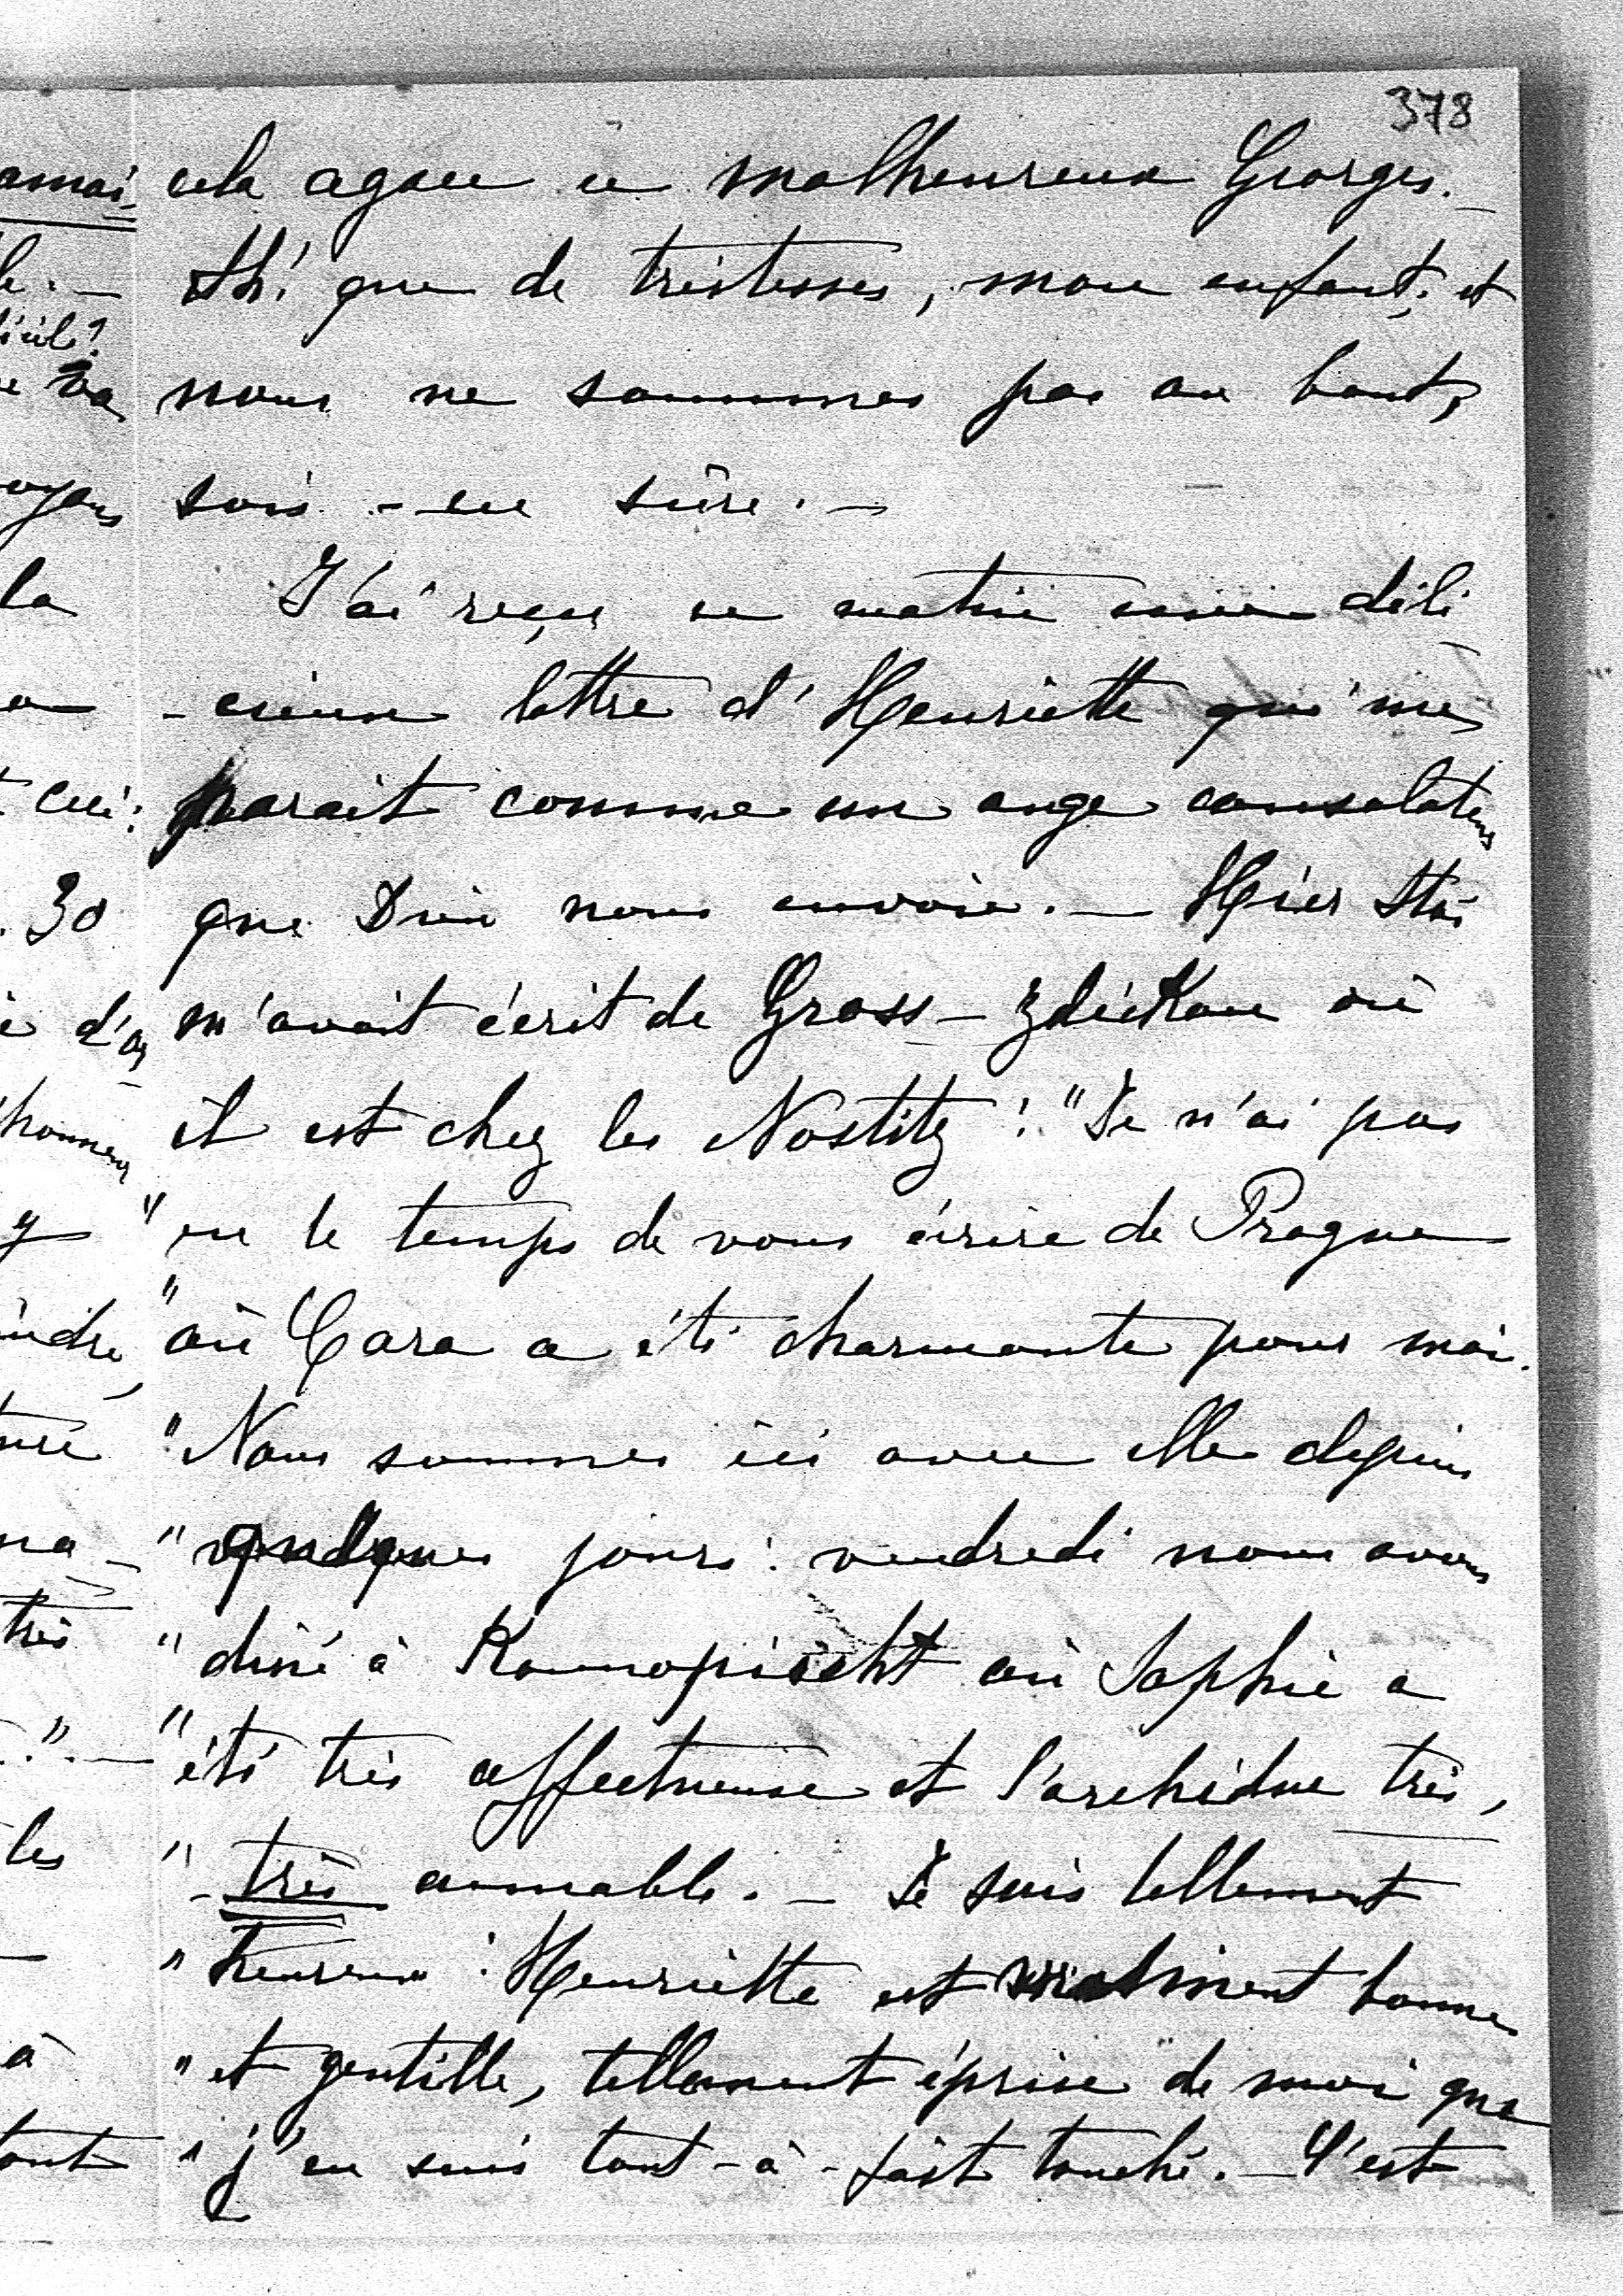 378
cela agace ce malheureux Georges. _
Ah! que de tristesses, mon enfant; et
nous ne sommes pas au bout,
sois - en sûre. —
J'ai reçu ce matin une déli
- cieuse lettre d'Henriette qui me
parait comme un ange consolateur
que Dieu nous envoie. — Hier Stas
m'avait écrit de Gross - Zdickau où
il est chez les Nostitz : "Je n'ai pas
" eu le temps de vous écrire de Prague
" où Cara a été charmante pour moi.
" Nous sommes ici avec elle depuis
" quelques jours : vendredi nous avons
" diné à Konnopischt où Sophie a
" été très affectueuse et l'archiduc très,
" - très aimable. - Je suis tellement
" heureux : Henriette est vraiment bonne
" et gentille, tellement éprise de moi que
" j'en suis tout - à - fait touché. — C'est